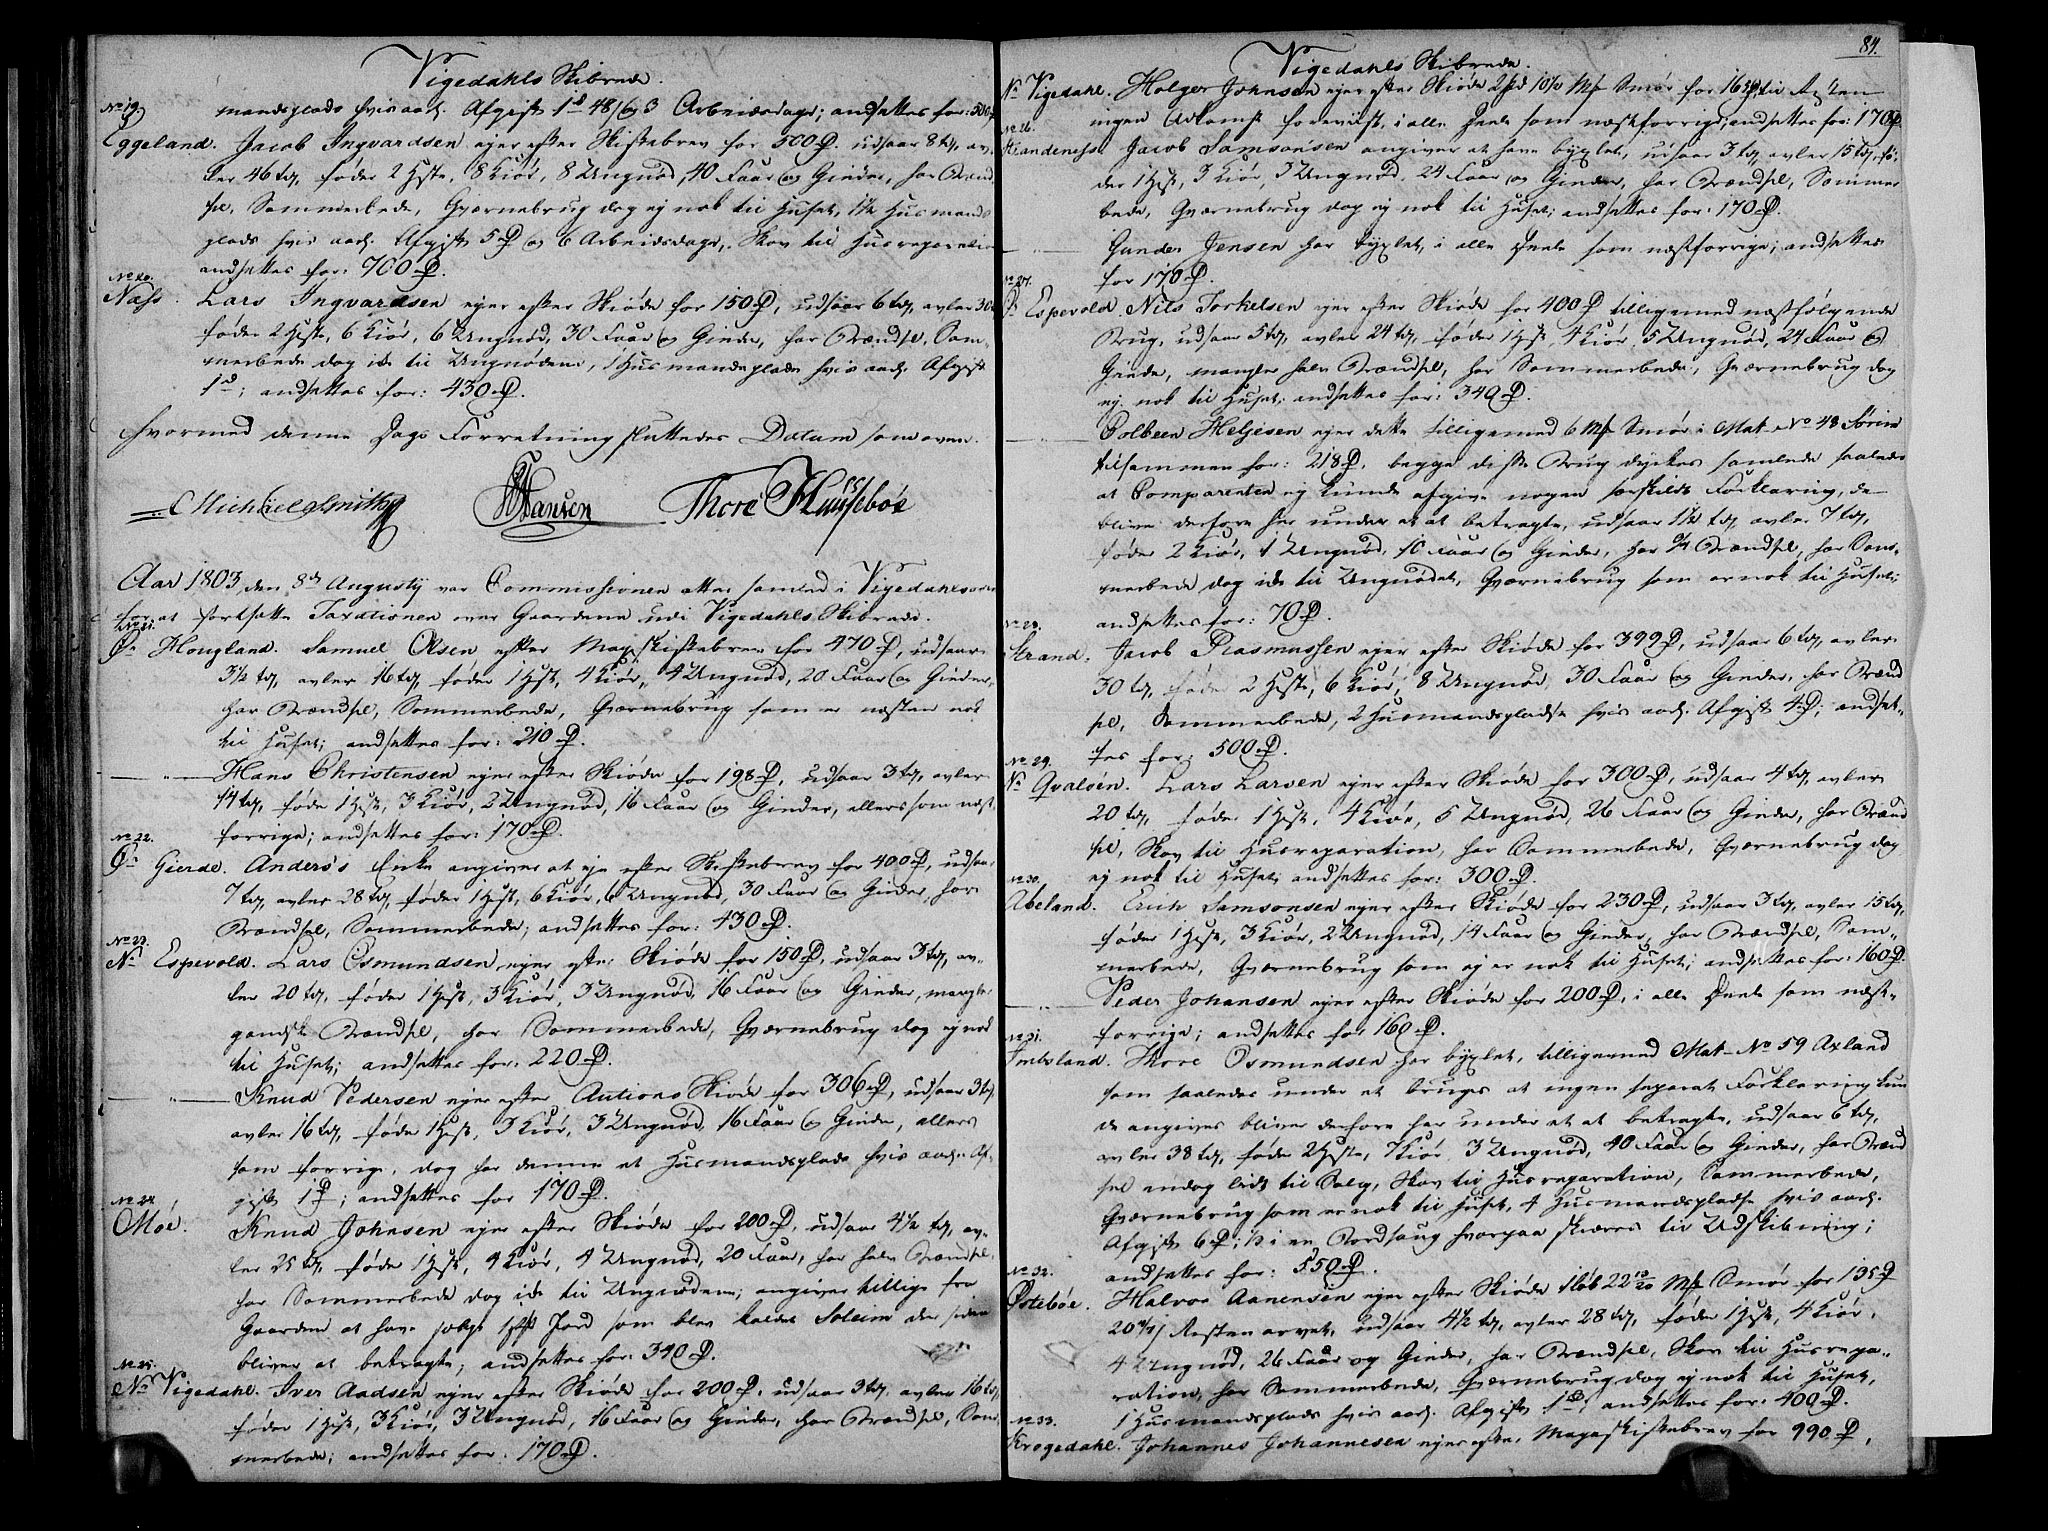 Vigedahls Skibrede.
mandsplads hvis aarl. Afgift 1rd 48 s og 3 Arbeidsdage; ansettes for: 500 rd
No 19.
Eggeland. Jacob Ingvardsen ejer efter Skiftebrev for 500 rd. udsaar 8 td, av-
ler 46 td, føder 2 Heste, 8 Kiør, 8 Ungnød, 40 Faar og Gieder, har Brænd
sel, Sommerbede, Qværnebrug dog ej nok til Huset, 1½ Husmands
plads hvis aarl. Afgift 5 rd og 6 Arbeidsdage, Skov til Husreparation
ansettes for: 700 rd.
No 20.
Næss. Lars Ingvardsen ejer efter Skiøde for 150 rd, udsaar 6 td, avler 30
føder 2 Heste, 6 Kiør, 6 Ungnød, 30 Faar og Gieder, har Brændsel, Som-
merbede dog ike til Ungnødene, 1 Husmandsplads hvis aarl. Afgift
1rd; ansettes for: 430 rd.
hvormed denne Dags Forretning sluttedes Datum som oven.
Michael Smith HHansen Thore Huusebøe
Aar 1803 den 8de Augustij var Commissionen atter samled i Vigedahlsøren
for at fortsette Taxationen over Gaardene udi Vigedahls Skibrede.
No 21.
Ø. Hougland. Samuel Olsen efter Mageskiftebrev for 470 rd, udsaar
3½ td, avler 16 td, føder 1 Hest, 4 Kiør, 4 Ungnød, 20 Faar og Gieder,
har Brændsel, Sommerbede, Qværnebrug som er næsten nok
til Huset; ansettes for: 210 rd.
— " — Hans Christensen ejer efter Skiøde for 198 rd, udsaar 3 td, avler
14 td, føde 1 Hest, 3 Kiør, 2 Ungnød, 16 Faar og Gieder, ellers som næst-
forrige; ansettes for: 170 rd.
No 22.
Ø. Gierde. Anders's Enke angiver at eje efter Skiftebrev for 400 rd, udsaar
7 td, avler 28 td, føder 1 Hest, 6 Kiør, 6 Ungnød, 30 Faar og Gieder, har
Brændsel, Sommerbede; ansettes for: 430 rd.
No 23.
N. Espevold. Lars Osmundsen ejer efter Skiøde for 150 rd, udsaar 3 td, av-
ler 20 td, føder 1 Hest, 3 Kiør, 3 Ungnød, 16 Faar og Gieder, mangler
gandske Brændsel, har Sommerbede, Qværnebrug dog ej nok
til Huset; ansettes for: 220 rd.
— " — Knud Pedersen ejer efter Auctions Skiøde for 306 rd, udsaar 3 td,
avler 16 td, føder 1 Hest, 3 Kiør, 3 Ungnød, 16 Faar og Gieder, ellers
som forrige, dog har denne et Husmandsplads hvis aarl. Af-
gift 1 rd; ansettes for 170 rd.
No 24.
Møe. Knud Johnsen ejer efter Skiøde for 200 rd, udsaar 4½ td, av-
ler 25 td, føder 1 Hest, 4 Kiør, 4 Ungnød, 20 Faar, har halv Brændsel,
har Sommerbede dog ike til Ungnødene; angiver tillige fra
Gaarden at have solgt Jord som blev kaldet Soleim der siden
bliver at betragte; ansettes for: 340 rd.
No 25.
N. Vigedahl. Iver Aadsen ejer efter Skiøde for 200 rd, udsaar 3 td, avler 16 td,
føder 1 Hest, 3 Kiør, 3 Ungnød, 16 Faar og Gieder, har Brændsel, Som-
merbede; ansettes for: 170 rd.
84.
Vigedahls Skibrede.
N. Vigedahl. Holger Johnsen ejer efter Skiøde 2 Spd 10½ Mk Smør for til Resten
ingen Adkomst foreviist, i alle Deele som næstforrige; ansettes for: 170 rd
No 26.
Handeness. Jacob Samsonsen angiver at have byxlet, udsaar 3 td, avler 15 td, fø-
der 1 Hest, 3 Kiør, 3 Ungnød, 24 Faar og Gieder, har Brændsel, Sommer
bede, Qværnebrug dog ej nok til Huset; ansettes for: 170 rd.
— " — Gunder Jensen har byxlet, i alle Deele som næstforrige; ansettes
for 170 rd.
No 27.
Ø. Espevold Nils Torkelsen ejer efter Skiøde for 400 rd tilligemed næstfølgende
Brug, udsaar 5 td, avler 24 td, føder 1 Hest, 4 Kiør, 5 Ungnød, 24 Faar og
Giede, mangler halv Brændsel, har Sommerbede, Qværnebrug dog
ej nok til Huset; ansettes for: 340 rd.
— " — Colbeen Heljesen ejer dette tilligemed 6 Mk Smør i Mat. No 48
tilsammen for: 218 rd, begge disse Brug dyrkes samlede saaledes
at Comparenten ej kunde afgive nogen særskilds Forklaring, de
bliver derfore her under et at betragte, udsaar 1½ td, avler 7 td,
føder 2 Kiør, 1 Ungnød, 10 Faar og Gieder, har Brændsel, har Som-
merbede dog ike til Ungnødet, Qværnebrug som er nok til Huset;
ansettes for: 70 rd.
No 28.
Strand. Jacob Rasmussen ejer efter Skiøde for 399 rd, udsaar 6 td, avler
30 td, føder 2 Heste, 6 Kiør, 8 Ungnød, 30 Faar og Gieder, har Brænd
sel, Sommerbede, 2 Husmandspladse hvis aarl. Afgift 4 rd; anset-
tes for: 500 rd.
No 29.
N. Qvaløen. Lars Larsen ejer efter Skiøde for 300 rd, udsaar 4 td, avler
20 td, føder 1 Hest, 4 Kiør, 5 Ungnød, 26 Faar og Gieder, har Brænd
sel, Skov til Husreparation, har Sommerbede, Qværnebrug dog
ej nok til Huset; ansettes for: 300 rd.
No 30.
Abeland. Erich Samsonsen ejer efter Skiøde for 230 rd, udsaar 3 td, avler 15 td,
føder 1 Hest, 3 Kiør, 2 Ungnød, 14 Faar og Gieder, har Brændsel, Som-
merbede, Qværnebrug som ej er nok til Huset; ansettes for: 160 rd.
— " — Peder Johansen ejer efter Skiøde for 200 rd, i alle Deele som næst-
forrige; ansettes for 160 rd.
No 31.
Imbsland. Thore Osmundsen har byxlet, tilligemed Mat. No 59 Axland
som saaledes under et bruges at ingen separat Forklaring kun
de angives bliver derfore her under et at betragte, udsaar 6 td,
avler 38 td, føder 2 Heste, 7 Kiør, 3 Ungnød, 40 Faar og Gieder, har Brænd
sel endog lidt til Salg, Skov til Husreparation, Sommerbede,
Qværnebrug som er nok til Huset, 4 Husmandspladse hvis aarl.
Afgift 6 rd; ½ i en Bordsaug hvorpaa skiæres til Udskibning;
ansettes for: 550 rd.
No 32.
Østebøe. Halvor Aanensen ejer efter Skiøde 1 Løb 22 10/20 Mk Smør for 135 rd
Resten arvet, udsaar 4½ td, avler 28 td, føder 1 Hest, 4 Kiør,
4 Ungnød, 26 Faar og Gieder, har Brændsel, Skov til Husrepa-
ration, har Sommerbede, Qværnebrug dog ej nok til Huset,
1 Husmandsplads hvis aarl. Afgift 1 rd; ansettes for: 400 rd.
No 33.
Krogedahl. Johannes Johannesen ejer efter Mageskiftebrev for 990 rd,